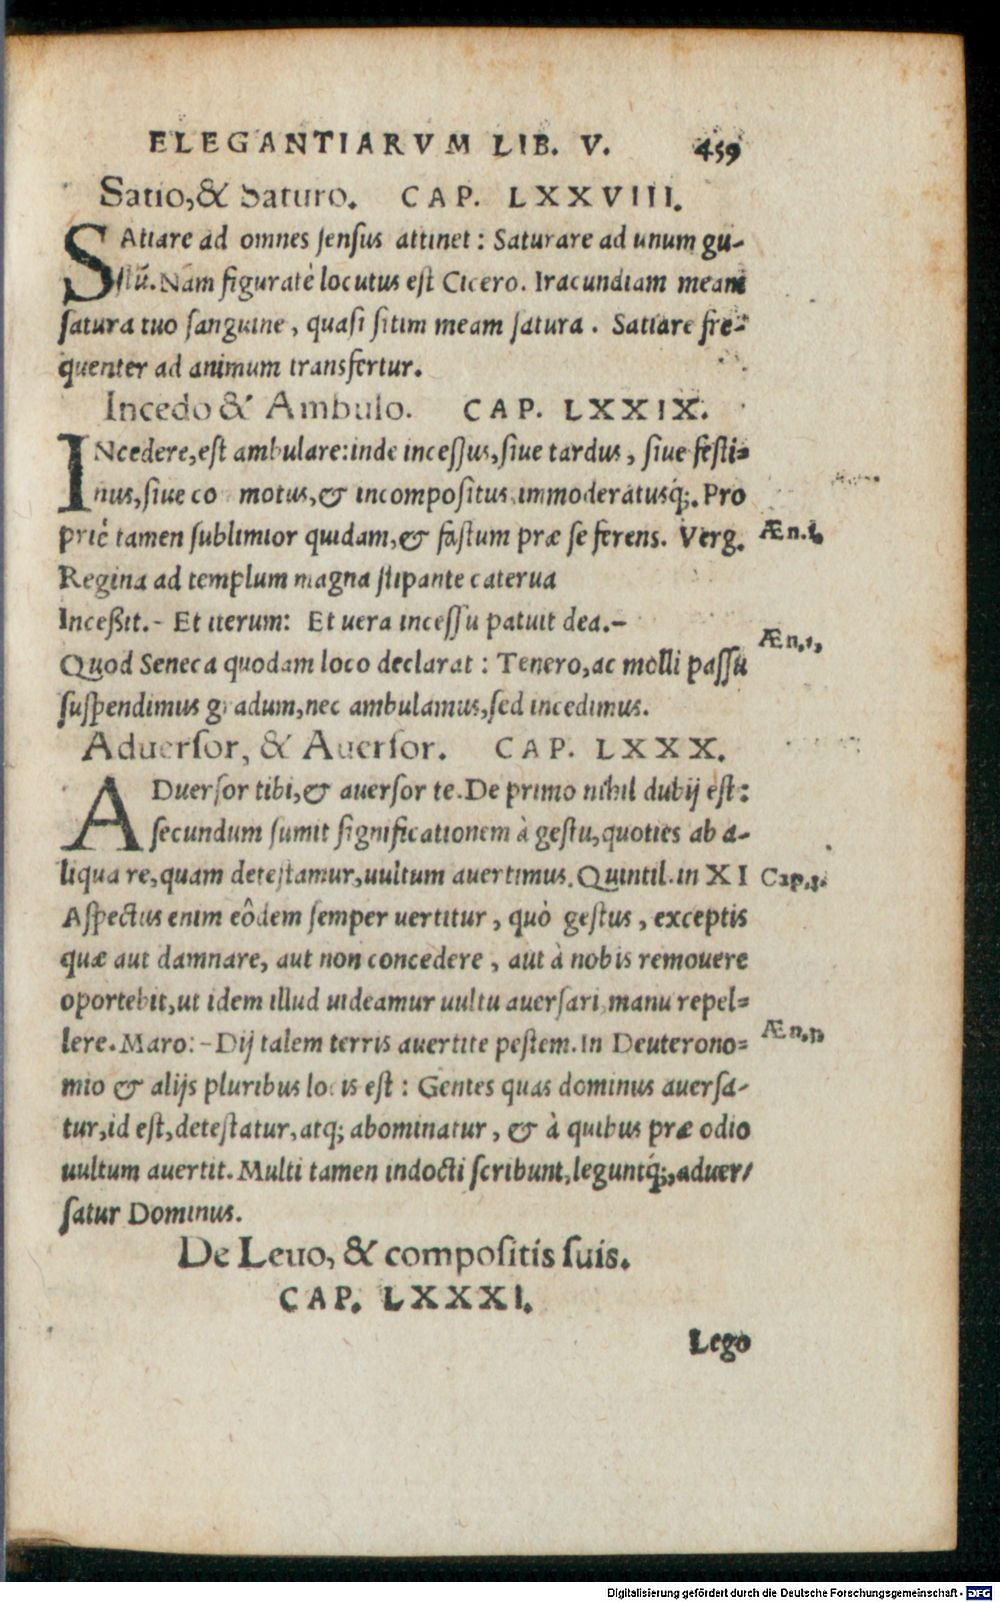 ELEGANTIARVM LIB. V. 459
Satio, & Saturo. CAP. LXXVIII.
SAtiare ad omnes sensus attinet : Saturare ad unum gu-
stũ. Nam figuratè locutus est Cicero. Iracundiam meam
satura tuo sanguine, quasi sitim meam satura. Satiare fre=
quenter ad animum transfertur.
Incedo & Ambulo. CAP. LXXIX.
INcedere, est ambulare: inde incessus, sive tardus, sive festi=
nus, sive co motus, & incompositus immoderatusq́;. Pro
priè tamen sublimior quidam, & fastum præ se ferens. Verg. Æn.1.
Regina ad templum magna stipante caterua
Inceßit.- Et iterum: Et uera incessu patuit dea.-
Æn.1,
Quod Seneca quodam loco declarat : Tenero, ac molli passu
suspendimus gradum, nec ambulamus, sed incedimus.
Aduersor, & Auersor. CAP. LXXX.
ADuersor tibi, & auersor te. De primo nihil dubij est:
secundum sumit significationem à gestu, quoties ab a-
liqua re, quam detestamur, uultum auertimus. Quintil. in XI Cap.3.
Aspectus enim eôdem semper uertitur, quò gestus, exceptis
quæ aut damnare, aut non concedere, aut à nobis remouere
oportebit, ut idem illud uideamur uultu auersari, manu repel=
lere. Maro: -Dij talem terris auertite pestem. In Deuterono= Æn.3,
mio & alijs pluribus locis est : Gentes quas dominus auersa-
tur, id est, detestatur, atq; abominatur, & à quibus præ odio
uultum auertit. Multi tamen indocti scribunt, leguntq́;, aduer/
satur Dominus.
De Leuo, & compositis suis.
CAP. LXXXI.
Lego
Digitalisierung gefördert durch die Deutsche Forschungsgemeinschaft - DFG